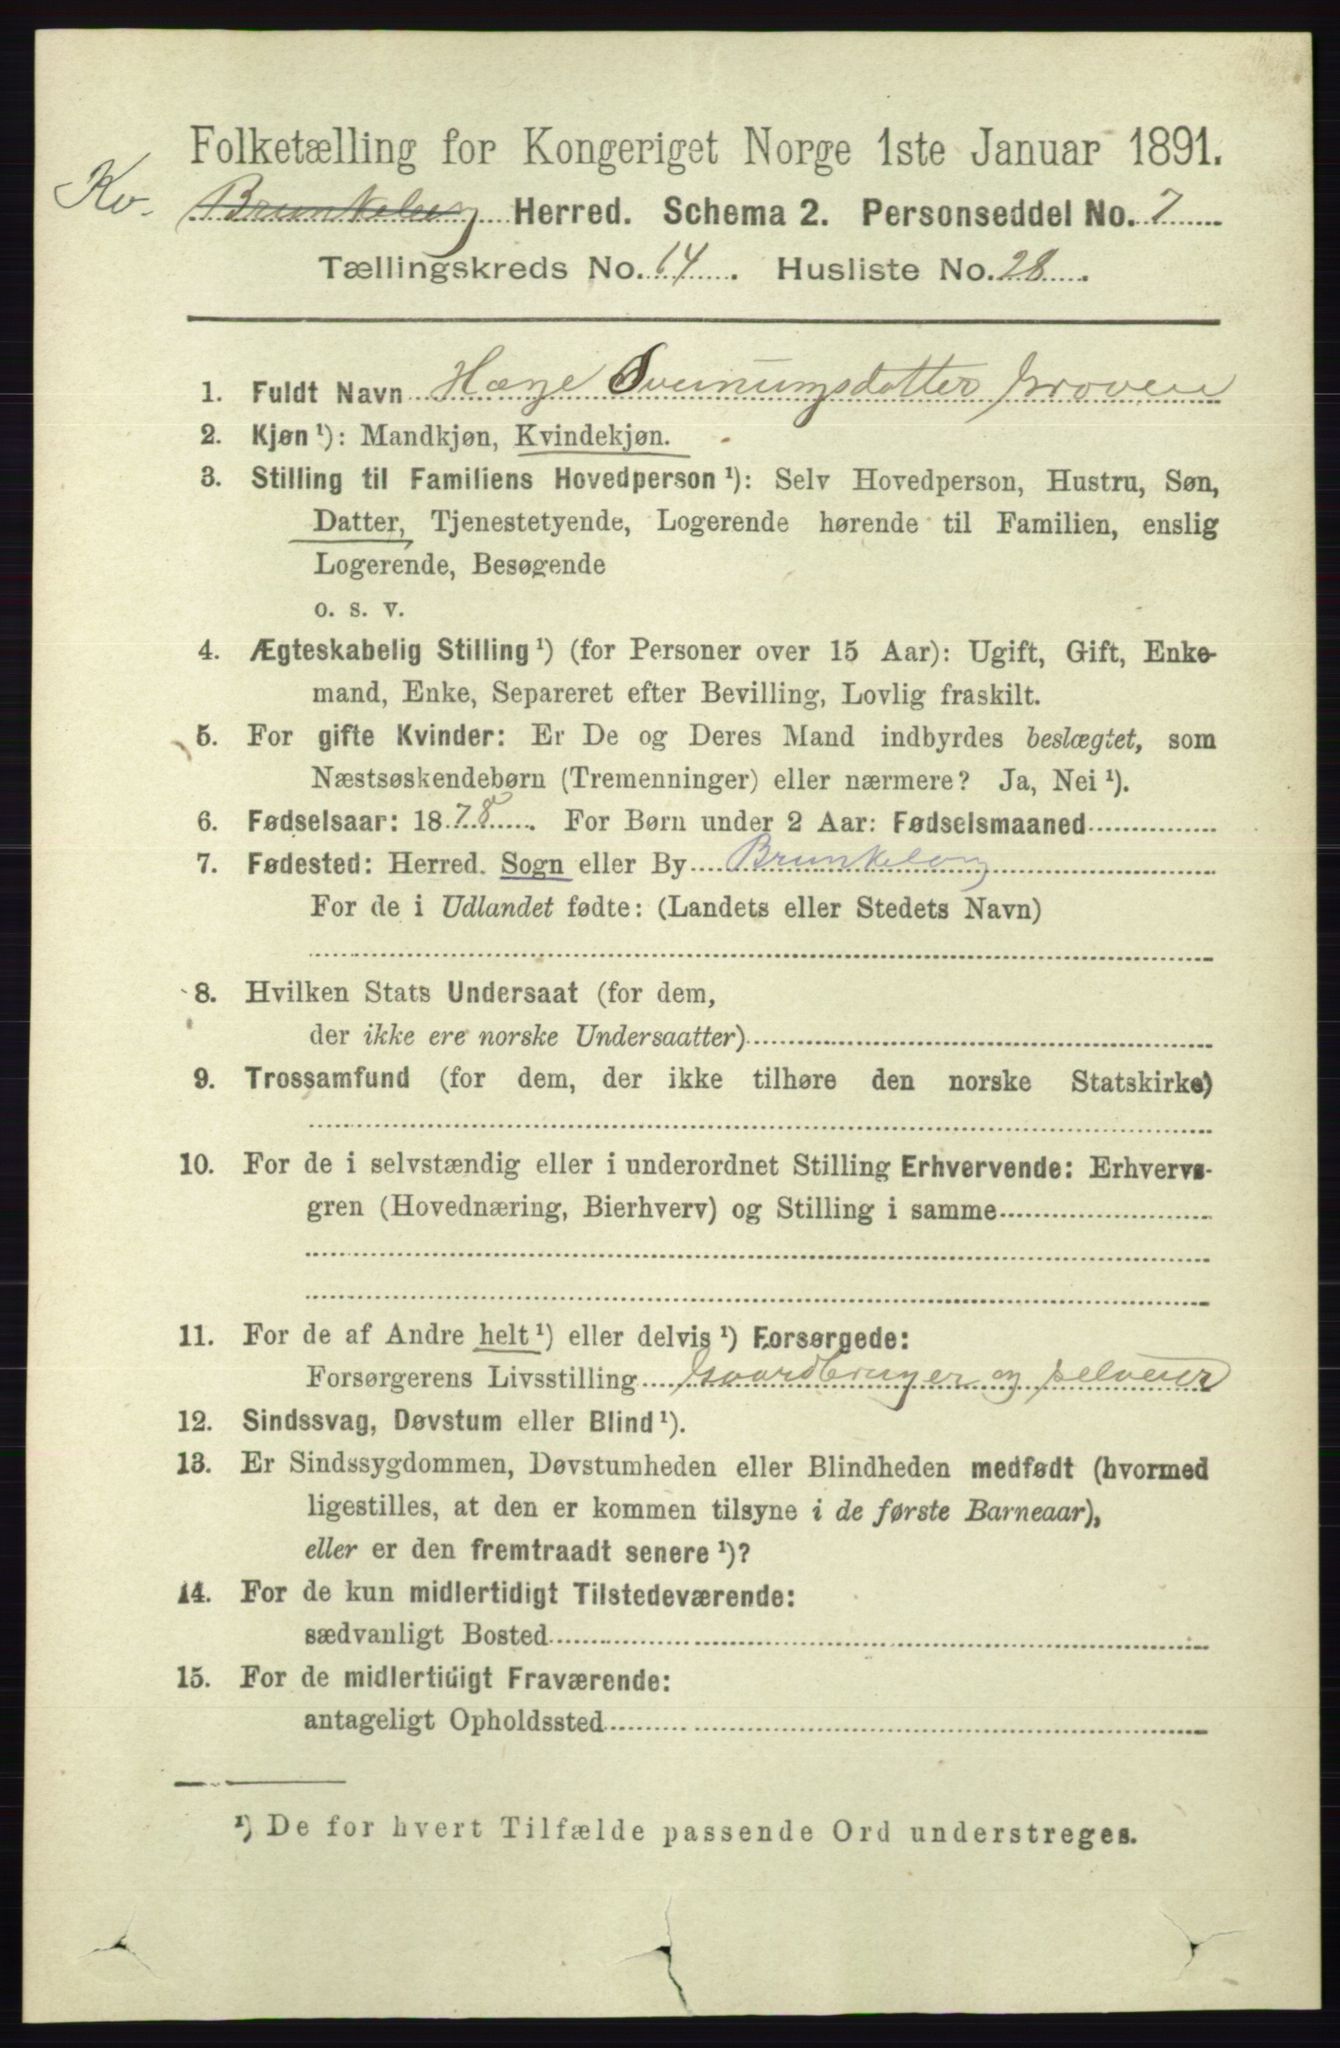 Folketælling for Kongeriget Norge 1ste Januar 1891.
Kv. Brunkeberg Herred. Schema 2. Personseddel No. 7
Tællingskreds No. 14. Husliste No. 28
1. Fuldt Navn Hæge Sveinungsdatter Groven
2. Kjøn ¹): Mandkjøn, Kvindekjøn.
3. Stilling til Familiens Hovedperson ¹): Selv Hovedperson, Hustru, Søn,
Datter, Tjenestetyende, Logerende hørende til Familien, enslig
Logerende, Besøgende
o. s. v.
4. Ægteskabelig Stilling ¹) (for Personer over 15 Aar): Ugift, Gift, Enke-
mand, Enke, Separeret efter Bevilling, Lovlig fraskilt.
5. For gifte Kvinder: Er De og Deres Mand indbyrdes beslægtet, som
Næstsøskendebørn (Tremenninger) eller nærmere? Ja, Nei ¹).
6. Fødselsaar: 1878. For Børn under 2 Aar: Fødselsmaaned
7. Fødested: Herred. Sogn eller By Brunkeberg
For de i Udlandet fødte: (Landets eller Stedets Navn)
8. Hvilken Stats Undersaat (for dem,
der ikke ere norske Undersaatter)
9. Trossamfund (for dem, der ikke tilhøre den norske Statskirke)
10. For de i selvstændig eller i underordnet Stilling Erhvervende: Erhvervs-
gren (Hovednæring, Bierhverv) og Stilling i samme
11. For de af Andre helt ¹) eller delvis ¹) Forsørgede:
Forsørgerens Livsstilling Gaardbruger og selveier
12. Sindssvag, Døvstum eller Blind ¹).
13. Er Sindssygdommen, Døvstumheden eller Blindheden medfødt (hvormed
ligestilles, at den er kommen tilsyne i de første Barneaar),
eller er den fremtraadt senere ¹)?
14. For de kun midlertidigt Tilstedeværende:
sædvanligt Bosted
15. For de midlertidigt Fraværende:
antageligt Opholdssted
¹) De for hvert Tilfælde passende Ord understreges.